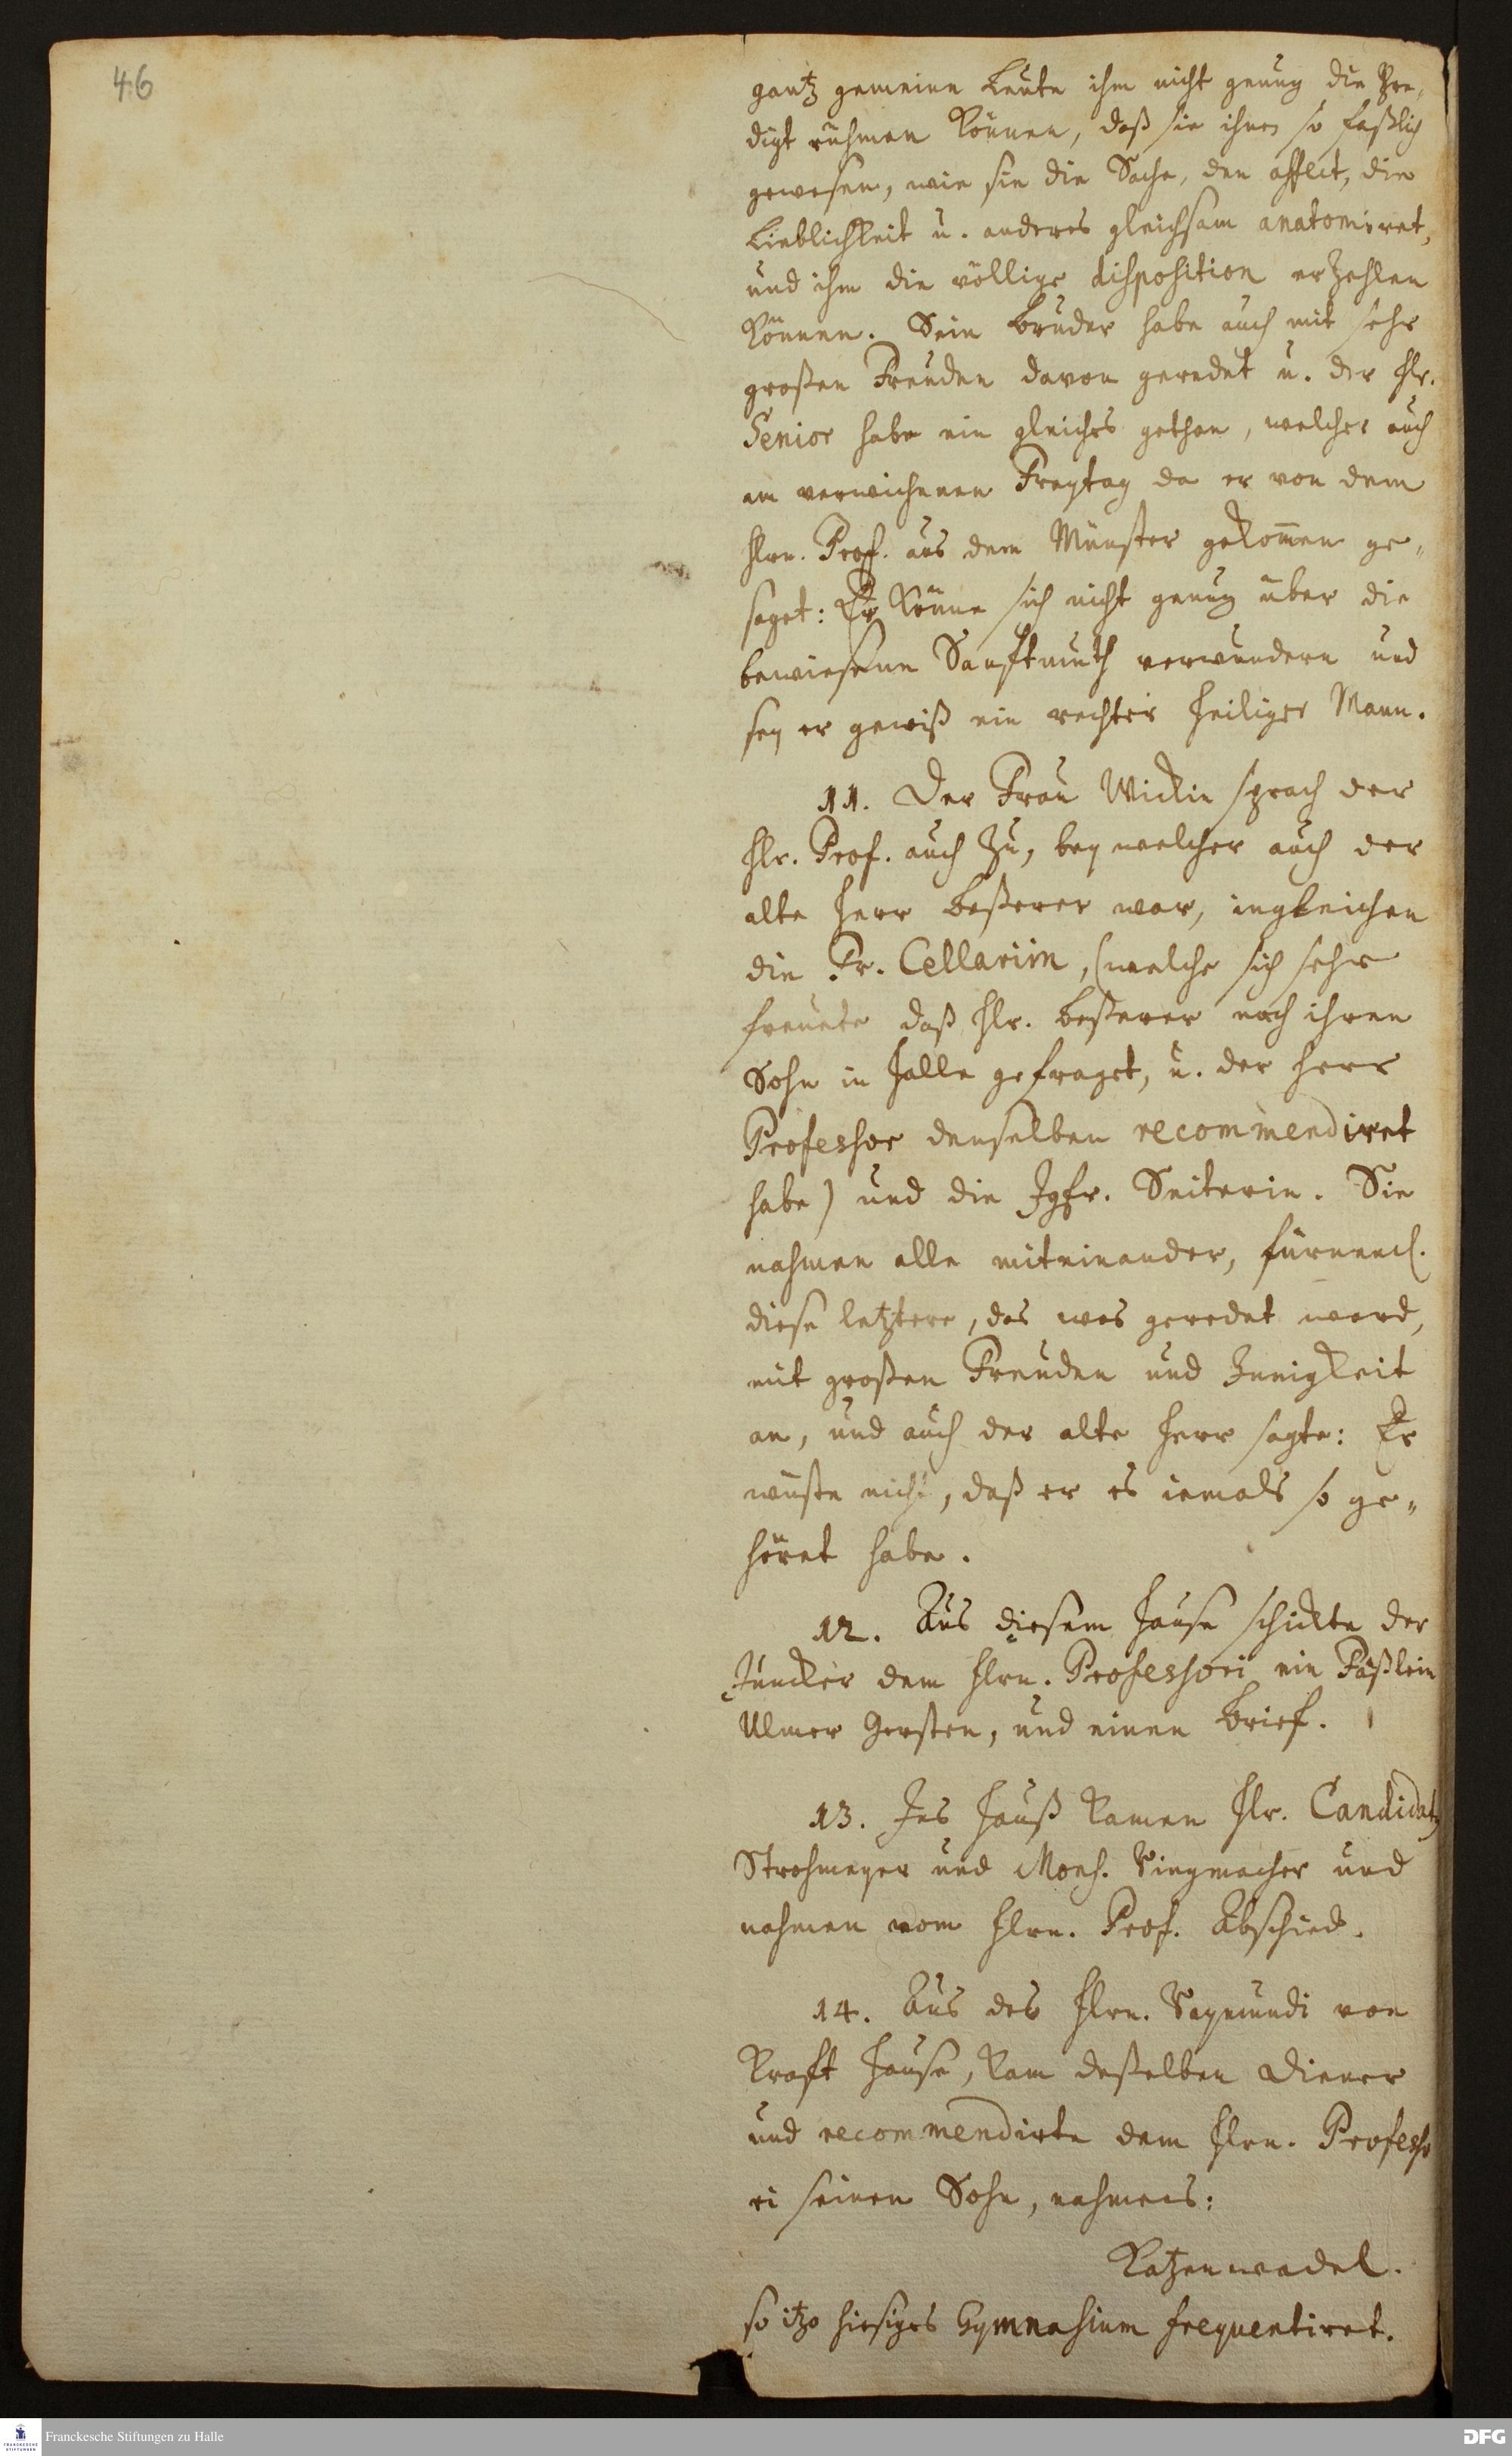 46
gantz gemeine Leute ihm nicht genug die Pre-
digt rühmen können, daß sie ihnen so faßlich
gewesen, wie sie die Sache, den affect, die
Lieblichkeit u. anderes gleichsam anatomiret,
und ihm die völlige disposition erzehlen
können. Sein Bruder habe auch mit sehr
großen Freuden davon geredet u. der Hr.
Senior habe ein gleiches gethan, welcher auch
am verwichenen Freytag da er von dem
Hrn. Prof. aus dem Münster gekom̄en ge-
saget: Er könne sich nicht genug über die
bewiesene Sanftmuth verwundern und
sey er gewiß ein rechter heiliger Mann.
11. Der Frau Wickin sprach der
Hr. Prof. auch zu, bey welcher auch der
alte Herr Beßerer war, ingleichen
die Fr. Cellariin, (welche sich sehr
freuete daß Hr. Beßerer nach ihren
Sohn in Halle gefraget, u. der Herr
Professor denselben recommendiret
habe) und die Jgfr. Seiterin. Sie
nahmen alle miteinander, fürneml.
diese letztere, das was geredet ward,
mit großen Freuden und Innigkeit
an, und auch der alte Herr sagte: Er
wüste nicht, daß er es iemals so ge-
höret habe.
12. Aus diesem Hause schickte der
Juncker dem Hrn. Professori ein Fäßlein
Ulmer Gersten, und einen Brief.
13. Ins Hauß kamen Hr. Candidatus
Strohmeyer und Mons. Ringmacher und
nahmen vom Hrn. Prof. Abschied.
14. Aus des Hrn. Raymundi von
Kraft Hause, kam deßelben Diener
und recommendirte dem Hrn. Professo
ri seinen Sohn, nahmens:
Katzenwadel.
so itzo hiesiges Gymnasium frequentiret.
Franckesche Stiftungen zu Halle
DFG